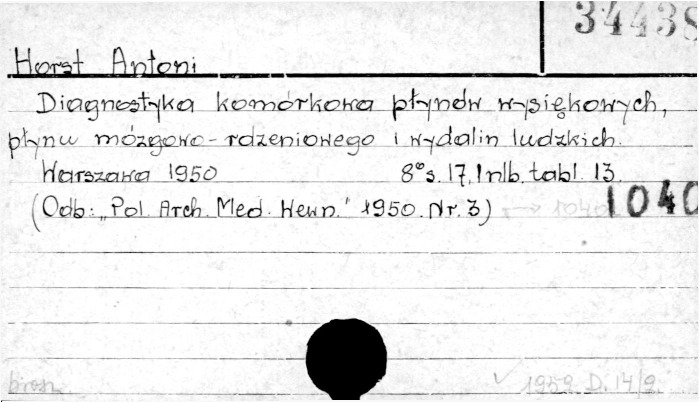 34438
Horst Antoni
Diagnostyka komórkowa płynów wysiękowych,
płynu mózgowo-rdzeniowego i wydalin ludzkich.
Warszawa 1950 8° s. 17, 1 nlb. tabl. 13.
(Odb: „Pol. Arch. Med. Wewn." 1950. Nr. 3) → 1040 1040
brosz. ✓ 1952. D. 14/2.